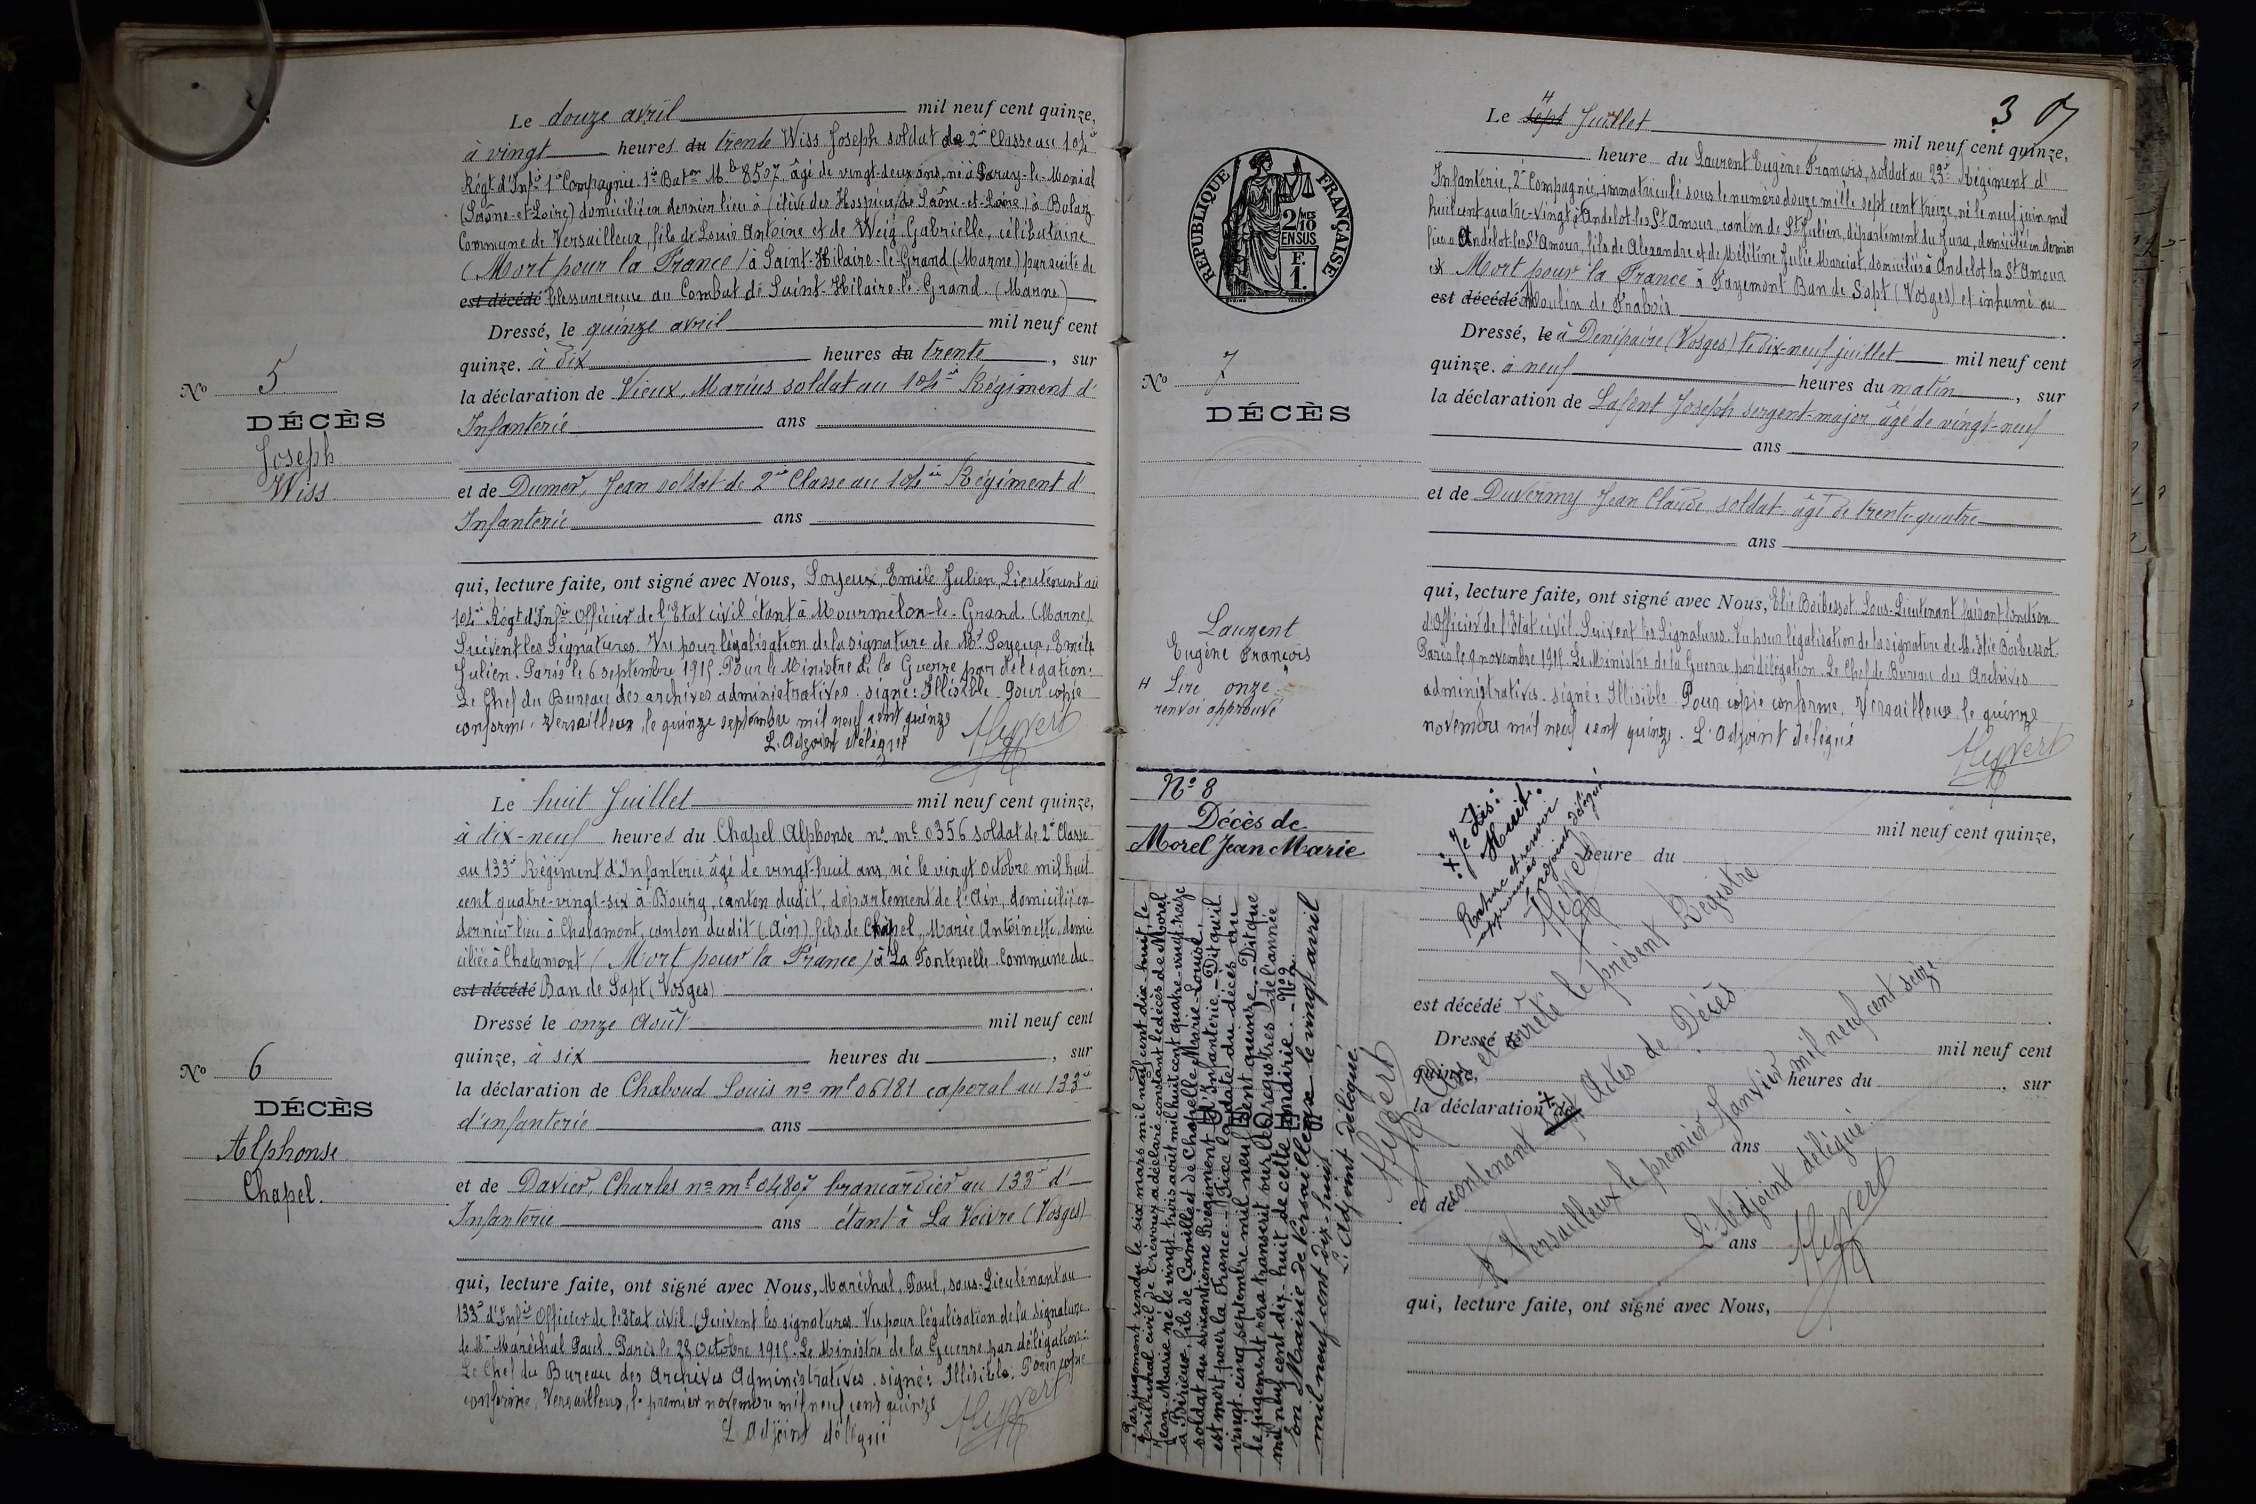 Le douze avril mil neuf cent quinze,
à vingt heures du trente Wiss Joseph soldat de 2e Classe au 104e
Régt d'Infie 1e Compagnie 1e Baton Mle 8507, âgé de vingt-deux ans, né à Paray-le-Monial
(Saône-et-Loire) domicilié en dernier lieu à (élève des Hospices de Saône-et-Loire) à Bolaz
Commune de Versailleux, fils de Louis Antoine et de Weig Gabrielle, célibataire
(Mort pour la France) à Saint-Hilaire-le-Grand (Marne) par suite de
est décédé blessure reçue au Combat de Saint-Hilaire-le-Grand. (Marne)
Dressé, le quinze avril mil neuf cent
quinze, à dix heures du trente, sur
la déclaration de Vieux, Marius soldat au 104e Régiment d'
Infanterie ans
et de Dumer, Jean soldat de 2e Classe au 104e Régiment d'
Infanterie ans
qui, lecture faite, ont signé avec Nous, Soyeux, Emile Julien, Lieutenant au
104e Régt d'Infie Officier de l'Etat civil étant à Mourmelon-le-Grand. (Marne)
Suivent les Signatures. Vu pour légalisation de la signature de Mr Soyeux, Emile
Julien. Paris le 6 septembre 1915. Pour le Ministre de la Guerre par délégation:
Le Chef du Bureau des archives administratives. signé: Illisible. Pour copie
conforme. Versailleux, le quinze septembre mil neuf cent quinze
L'Adjoint délégué
Hyvert
No 5
DÉCÈS
Joseph
Wiss
Le huit Juillet mil neuf cent quinze,
à dix-neuf heures du Chapel Alphonse no ml 0356 soldat de 2e Classe
au 133e Régiment d'Infanterie âgé de vingt-huit ans, né le vingt octobre mil huit
cent quatre-vingt-six à Bourg, canton dudit, département de l'Ain, domicilié en
dernier lieu à Chalamont, canton dudit (Ain) fils de Chapel, Marie Antoinette, domi
ciliée à Chalamont (Mort pour la France) à La Fontenelle. Commune du
est décédé Ban de Sapt (Vosges)
Dressé le onze Août mil neuf cent
quinze, à six heures du , sur
la déclaration de Chaboud Louis no ml 06181 caporal au 133e
d'infanterie ans
et de Davier, Charles no ml 04807 brancardier au 133e d'
Infanterie ans étant à La Voivre (Vosges)
qui, lecture faite, ont signé avec Nous, Maréchal, Paul, sous-Lieutenant au
133e d'Infie Officier de l'Etat civil. Suivent les signatures. Vu pour légalisation de la signature
de Mr Maréchal Paul. Paris le 28 octobre 1915. Le Ministre de la Guerre par délégation:
Le Chef du Bureau des Archives Administratives. signé: Illisible. Pour copie
conforme, Versailleux, le premier novembre mil neuf cent quinze
L'adjoint délégué
Hyvert
No 6
DÉCÈS
Alphonse
Chapel.
3
RÉPUBLIQUE FRANÇAISE
2/10 MES
EN SUS
F.
1.
Le sept H Juillet mil neuf cent quinze,
heure du Laurent Eugène François, soldat au 23e Régiment d'
Infanterie, 2e Compagnie, immatriculé sous le numéro douze mille sept cent treize, né le neuf juin mil
huit cent quatre-vingt à Andelot-les-St Amour, canton de St Julien, département du Jura, domicilié en dernier
lieu à Andelot-les-St Amour, fils de Alexandre et de Mélitine Julie Marciat, domiciliés à Andelot les St Amour
Mort pour la France à Fayemont Ban de Sapt (Vosges) et inhumé au
est décédé Moulin de Frabois
Dressé, le à Denipaire (Vosges) le dix-neuf juillet mil neuf cent
quinze, à neuf heures du matin, sur
la déclaration de Lafont Joseph sergent-major âgé de vingt-neuf
ans
et de Duvermy Jean Claude soldat âgé de trente-quatre
ans
qui, lecture faite, ont signé avec Nous, Elie Boibessot, Sous-Lieutenant faisant fonction
d'Officier de l'Etat civil. Suivent les Signatures. Vu pour légalisation de la signature de M. Elie Boibessot.
Paris le 9 novembre 1915. Le Ministre de la Guerre par délégation. Le Chef de Bureau des Archives
administratives. signé: Illisible. Pour copie conforme. Versailleux le quinze
novembre mil neuf cent quinze. L'adjoint délégué
Hyvert
No 7
DÉCÈS
Laurent
Eugène François
H Lire onze
renvoi approuvé
No 8
Décès de
Morel Jean Marie
Par jugement rendu le six mars mil neuf cent dix-huit, le
tribunal civil de Trévoux a déclaré constant le décès de Morel
Jean-Marie né le vingt trois août mil huit cent quatre-vingt-treize
à Birieux, fils de Camille et de Chapelle Marie-Louise,
soldat au soixantième Régiment d'Infanterie. Dit qu'il
est mort pour la France. Fixe la date du décès au
vingt-cinq septembre mil neuf cent quinze. Dit que
le jugement sera transcrit sur les registres de l'année
mil neuf cent dix-huit de cette mairie.
En Mairie de Versailleux le vingt avril
mil neuf cent dix-huit
L'Adjoint délégué,
Hyvert
x: Je dis:
Huit.
Rature et renvoi
approuvés
L'adjoint délégué
Hyvert
mil neuf cent quinze,
heure du
est décédé
Dressé le mil neuf cent
quinze, heures du , sur
la déclaration de
ans
et de
ans
qui, lecture faite, ont signé avec Nous,
Clos et arrêté le présent Registre
contenant sept x Actes de Décès
A Versailleux le premier Janvier mil neuf cent seize
L'Adjoint délégué
Hyvert